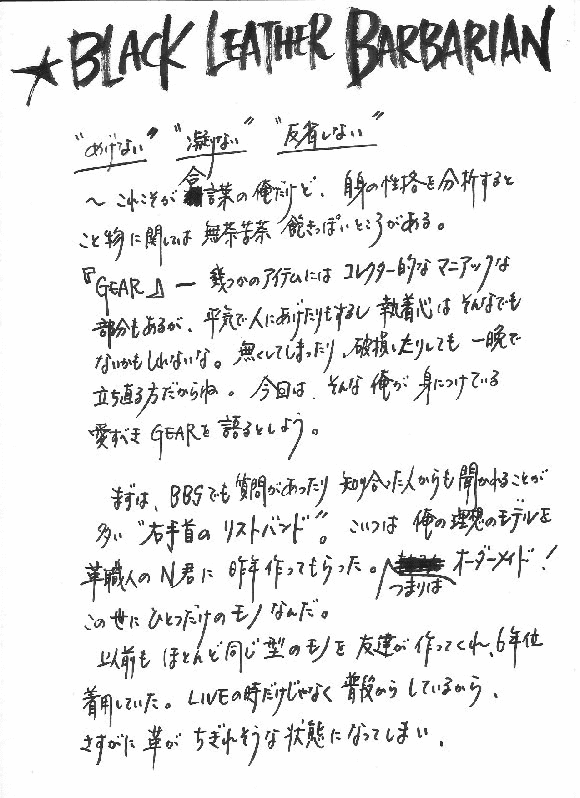 ★BLACK LEATHER BARBARIAN
"めげない" "凝りない" "反省しない"
〜これこそが合言葉の俺だけど、自身の性格を分析すると
こと物に関しては無茶苦茶飽きっぽいところがある。
『GEAR』― 幾つかのアイテムにはコレクター的なマニアックな
部分もあるが、平気で人にあげたりもするし執着心はそんなでも
ないかもしれないな。無くしてしまったり、破損したりしても一晩で
立ち直る方だからね。今回は、そんな俺が身につけている
愛すべきGEARを語るとしよう。
まずは、BBSでも質問があったり知り合った人からも聞かれることが
多い"右手首のリストバンド"。こいつは俺の理想のモデルを
革職人のN君に昨年作ってもらった。つまりはオーダーメイド!
この世にひとつだけのモノなんだ。
以前もほとんど同じ型のモノを友達が作ってくれ、6年位
着用していた。LIVEの時だけじゃなく普段からしているから、
さすがに革がちぎれそうな状態になってしまい、